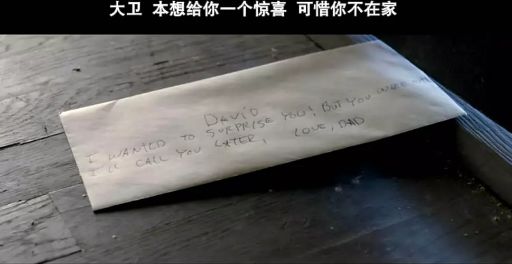 大卫 本想给你一个惊喜 可惜你不在家
DAVID
I WANTED TO SURPRISE YOU! BUT YOU WERE
I'LL CALL YOU LATER, LOVE, DAD